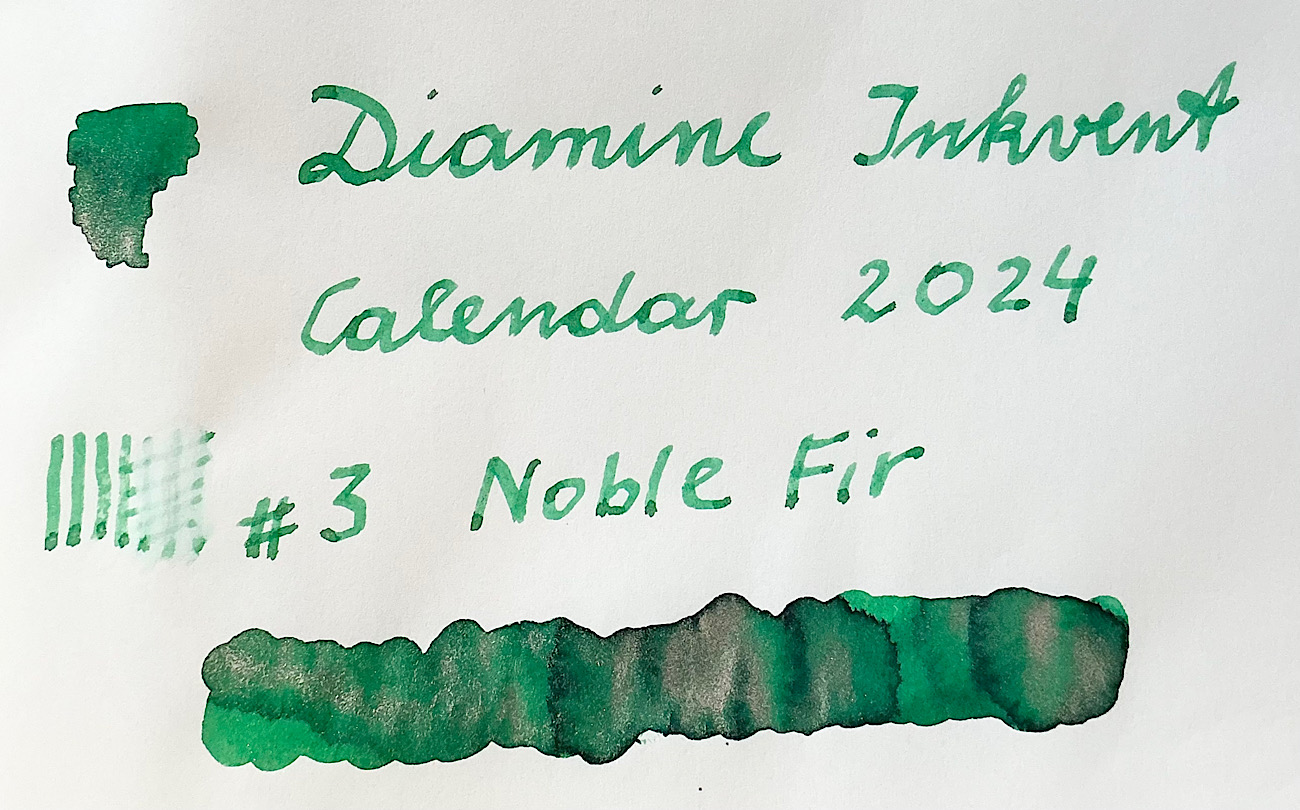 Diamine Inkvent
Calendar 2024
#3 Noble Fir